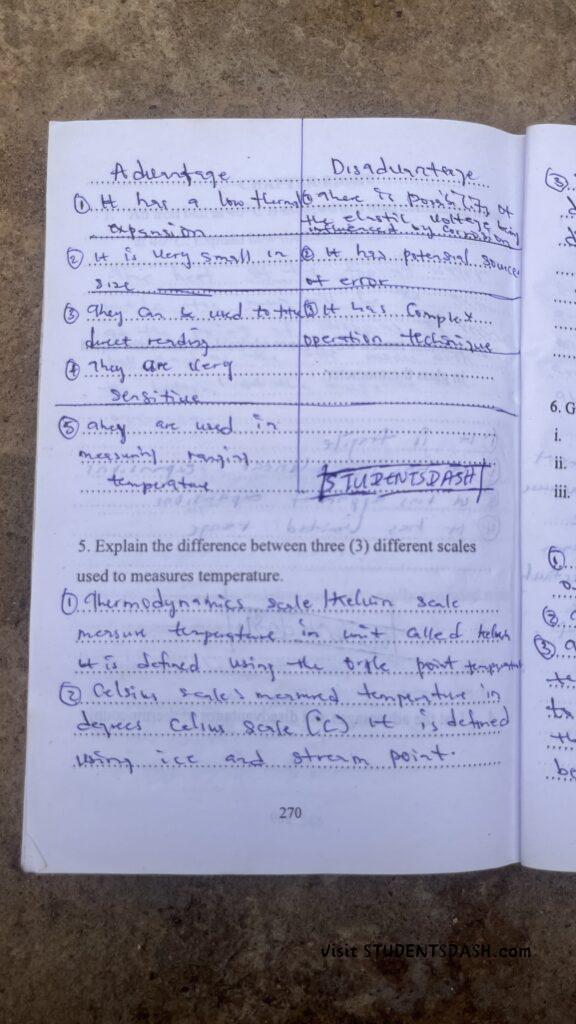 Advantage
Disadvantage
① It has a low thermal
expansion
② It is very small in
size
③ They can be used to take
direct reading
④ They are very
sensitive
⑤ They are used in
measuring ranging
temperature
① There is possibility of
the elastic voltage being
influenced by corrosion
② It has potential source
of error
③ It has complex
operation technique
STUDENTSDASH
5. Explain the difference between three (3) different scales
used to measures temperature.
① Thermodynamics scale / Kelvin scale
measure temperature in unit called kelvin
it is defined using the triple point temperature
② Celsius scale: measured temperature in
degrees Celsius scale (°C) it is defined
using ice and stream point.
270
6. G
i.
ii.
iii.
①
②
③
be
Visit STUDENTSDASH.com